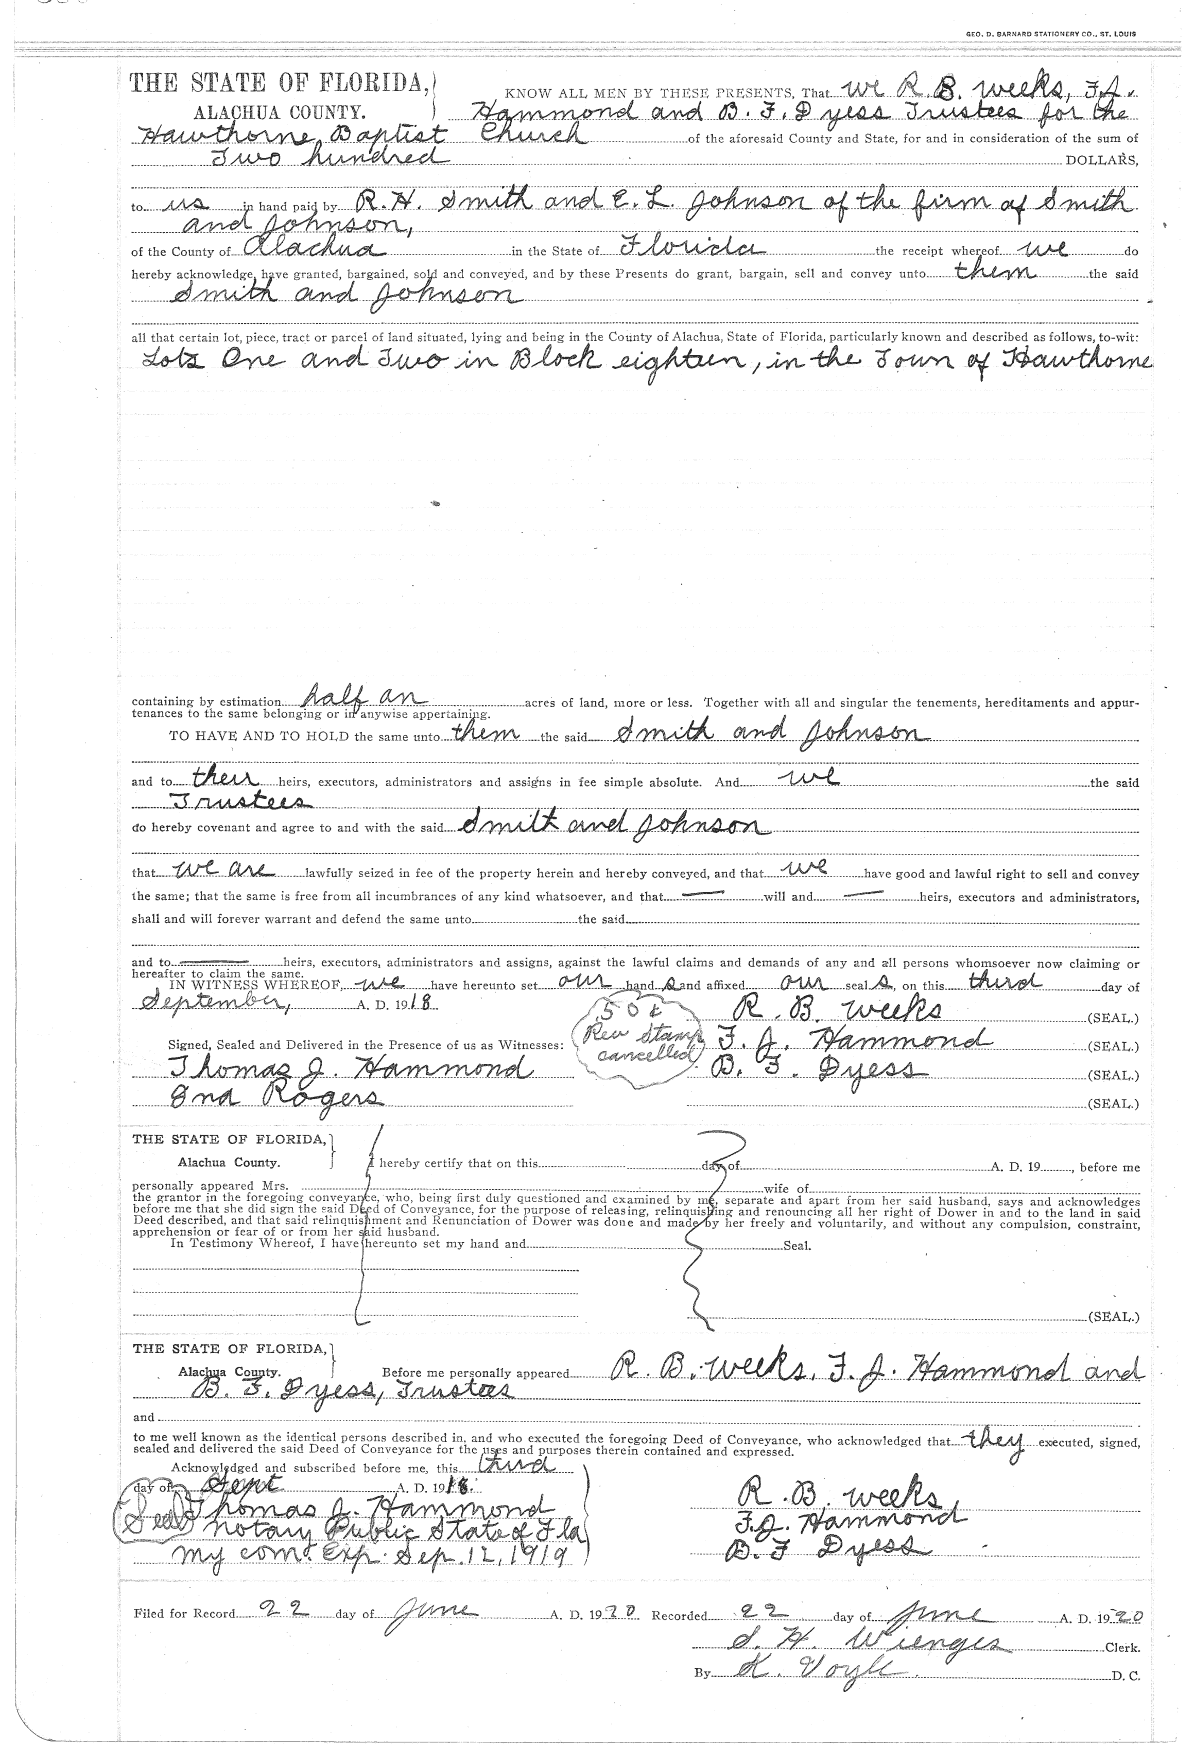 GEO. D. BARNARD STATIONERY CO., ST. LOUIS
THE STATE OF FLORIDA,
KNOW ALL MEN BY THESE PRESENTS, That we R. B. Weeks, F.J.
ALACHUA COUNTY. Hammond and B. F. Dyess Trustees for the
Hawthorne Baptist Church of the aforesaid County and State, for and in consideration of the sum of
Two hundred DOLLARS,
to us in hand paid by R. H. Smith and E. L. Johnson of the firm of Smith
and Johnson,
of the County of Alachua in the State of Florida the receipt whereof we do
hereby acknowledge, have granted, bargained, sold and conveyed, and by these Presents do grant, bargain, sell and convey unto them the said
Smith and Johnson
all that certain lot, piece, tract or parcel of land situated, lying and being in the County of Alachua, State of Florida, particularly known and described as follows, to-wit:
Lots One and Two in Block eighteen, in the Town of Hawthorne
containing by estimation half an acres of land, more or less. Together with all and singular the tenements, hereditaments and appur-
tenances to the same belonging or in anywise appertaining.
TO HAVE AND TO HOLD the same unto them the said Smith and Johnson
and to their heirs, executors, administrators and assigns in fee simple absolute. And we the said
Trustees
do hereby covenant and agree to and with the said Smith and Johnson
that we are lawfully seized in fee of the property herein and hereby conveyed, and that we have good and lawful right to sell and convey
the same; that the same is free from all incumbrances of any kind whatsoever, and that — will and — heirs, executors and administrators,
shall and will forever warrant and defend the same unto the said
and to — heirs, executors, administrators and assigns, against the lawful claims and demands of any and all persons whomsoever now claiming or
hereafter to claim the same.
IN WITNESS WHEREOF, we have hereunto set our hand s and affixed our seal s, on this third day of
September, A. D. 1918
50¢ R. B. Weeks (SEAL.)
Signed, Sealed and Delivered in the Presence of us as Witnesses: Rev Stamp F. J. Hammond (SEAL.)
Thomas J. Hammond cancelled B. F. Dyess (SEAL.)
Rogers (SEAL.)
THE STATE OF FLORIDA,
Alachua County. I hereby certify that on this day of A. D. 19, before me
personally appeared Mrs. wife of
the grantor in the foregoing conveyance, who, being first duly questioned and examined by me, separate and apart from her said husband, says and acknowledges
before me that she did sign the said Deed of Conveyance, for the purpose of releasing, relinquishing and renouncing all her right of Dower in and to the land in said
Deed described, and that said relinquishment and Renunciation of Dower was done and made by her freely and voluntarily, and without any compulsion, constraint,
apprehension or fear of or from her said husband.
In Testimony Whereof, I have hereunto set my hand and Seal.
(SEAL.)
THE STATE OF FLORIDA,
Alachua County. Before me personally appeared R. B. Weeks, F. J. Hammond and
B. F. Dyess, Trustees
and
to me well known as the identical persons described in, and who executed the foregoing Deed of Conveyance, who acknowledged that they executed, signed,
sealed and delivered the said Deed of Conveyance for the uses and purposes therein contained and expressed.
Acknowledged and subscribed before me, this third
day of Sept A. D. 1918.
Thomas J. Hammond R. B. Weeks,
Seal Notary Public State of Fla F.J. Hammond
My com. Exp. Sep. 12, 1919 B. F Dyess
Filed for Record 22 day of June A. D. 1920 Recorded 22 day of June A. D. 1920
S. H. Wienges Clerk.
By K. Voyle D. C.